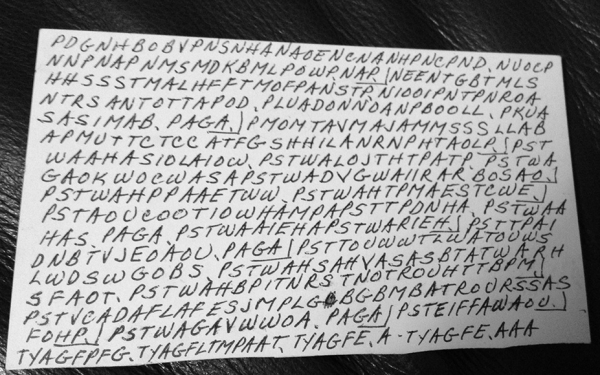 PDGNHBOBVPNSNHANAOENCNANHPNCPND. NUOCP
NNPNAPNMSMDKBMLPOWPNAP. NEENTGBTMLS
HHSSSTMALHFFTMOFPANSTP. NIOOIPNTPNROA
NTRSANTOTTAPOD. PLUADONNOANPBOOLL. PKUA
SASIMAB. PAGA. PMOMTAVMAJAMMSSSLLAB
APMUTTCTCC ATFG SHHILANRNPHTAOLP. PST
WAAHASIOLAIOW. PSTWALOJTHTPATP. PSTWA
GAOKWOCWASAPSTWADVGWAIIRAR. BOSAO.
PSTWAHPPAAETWW. PSTWAHTPMAESTCWE.
PSTAOUCOOTIOWHAMPAPSTTPDNHA. PSTWAA
HAS. PAGA. PSTWAAIEHAPSTWARIEH. PSTTPAI
DNBTVJEOAOU. PAGA PSTTOUWWTLWATOUWS
LWDSWGOBS. PSTWAHSAHVASASBTATWARH
SFAOT. PSTWAHBPITNRSTNOTROUHTTBPM
PSTVCADAFLAFESJMPLG BGBMBATROURSSAS
FOHP. PSTWAGAVWWOA. PAGA PSTEIFFAWAOU.
TYAGFPFG. TYAGFLTMPAAT. TYAGFE. A-TYAGFE. AAA